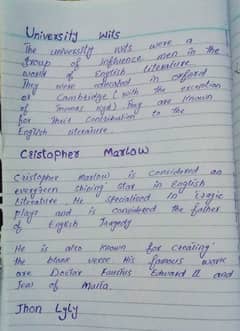 University wits
The university wits were a
group of influence men in the
world of English literature.
They were educated in oxford
or Cambridge (with the exception
of Thomas Kyd) They are known
for their Contribution to the
English literature.
Cristopher Marlow
Cristopher marlow is considered an
evergreen shining star in English
Literature. He specialised in Tragic
plays and is considered the father
of English Tragedy
He is also known for creating
the blank verse. His famous work
are Doctor Faustus Edward II and
Jew of Malta.
Jhon Lyly